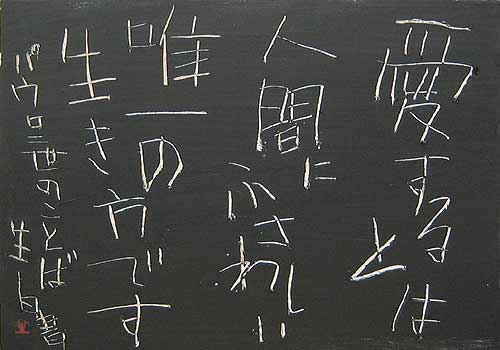 愛するとは
人間に
ふさわしい
唯一の
生き方です
パウロ二世のことば